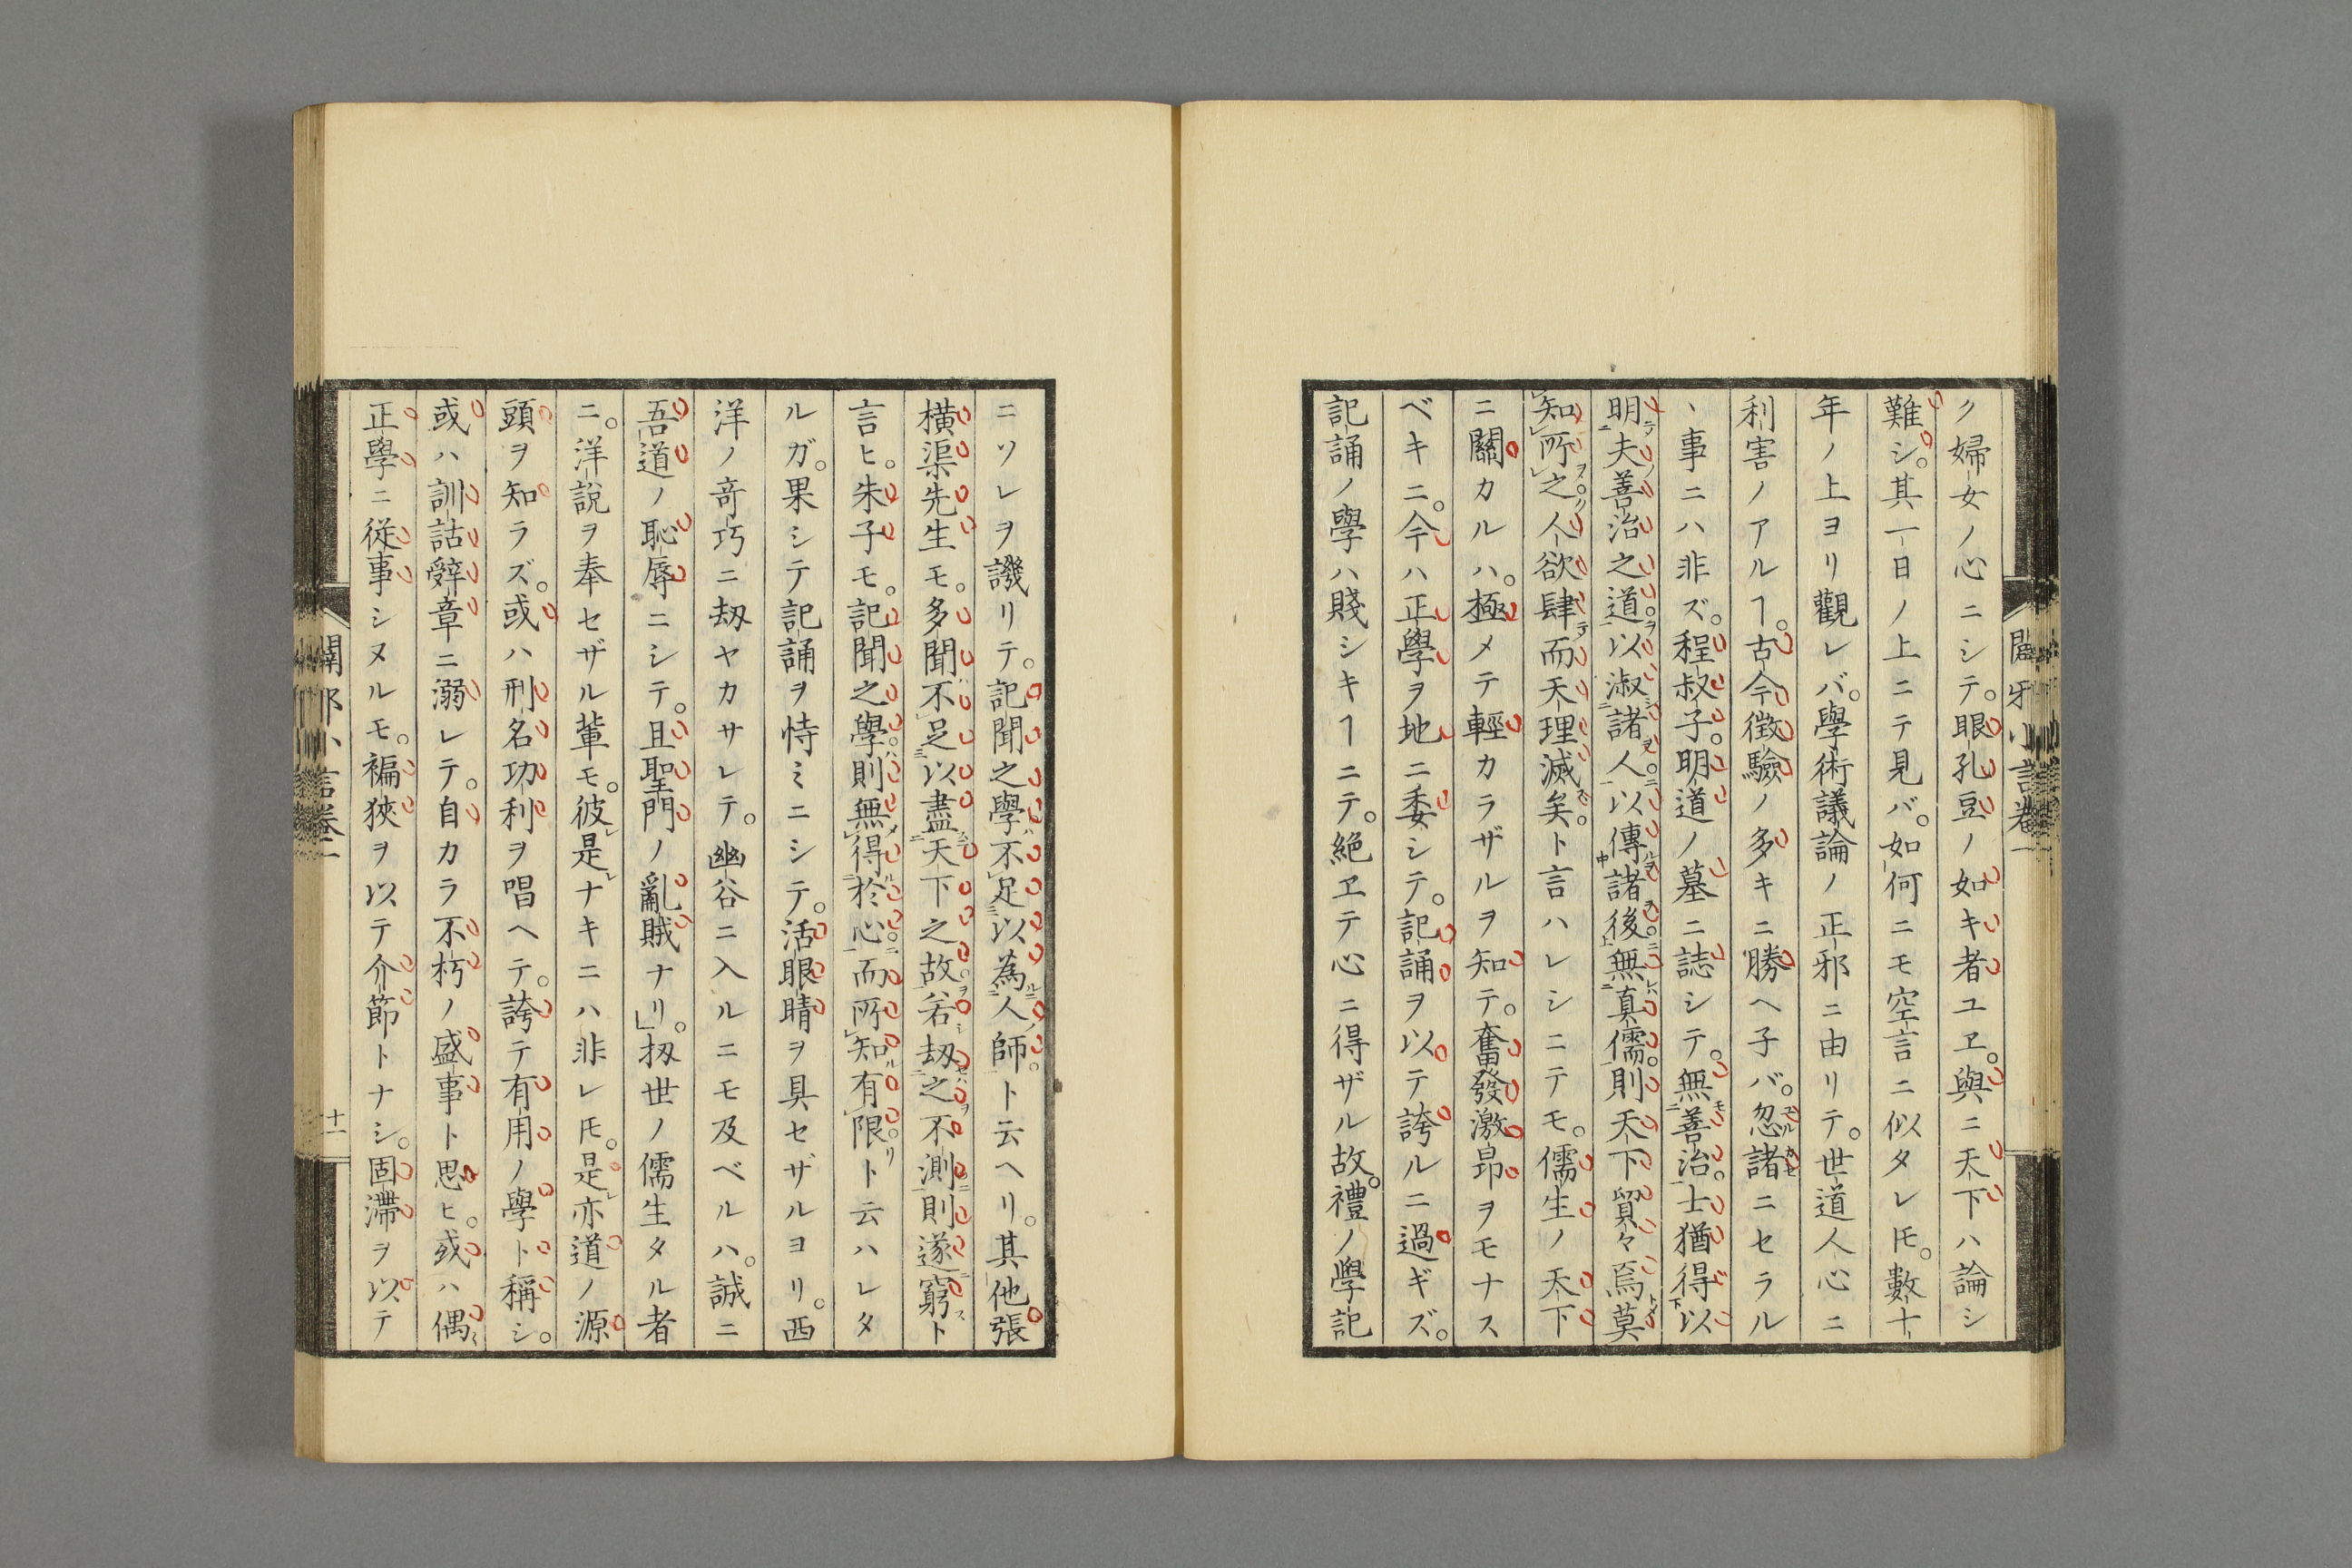 ク婦女ノ心ニシテ。眼孔豆ノ如キ者ユヱ。與ニ天下ハ論シ
難シ。其一日ノ上ニテ見バ。如何ニモ空言ニ似タレ𪜈。數十
年ノ上ヨリ觀レバ。學術議論ノ正邪ニ由リテ。世道人心ニ
利害ノアルヿ。古今徴驗ノ多キニ勝ヘ子バ。忽諸ニセラル
丶事ニハ非ズ。程叔子。明道ノ墓ニ誌シテ。無善治。士猶得以
明夫善治之道。以淑諸人。以傳諸後。無真儒。則天下貿々焉莫
知所之。人欲肆而天理滅矣。ト言ハレシニテモ。儒生ノ天下
ニ關カルハ。極メテ輕カラザルヲ知テ。奮發激昂ヲモナス
ベキニ。今ハ正學ヲ地ニ委シテ。記誦ヲ以テ誇ルニ過ギズ。
記誦ノ學ハ賤シキヿニテ。絶ヱテ心ニ得ザル故。禮ノ學記
ニソレヲ譏リテ。記聞之學不足以為人師。ト云ヘリ。其他張
横渠先生モ。多聞不足以盡天下之故。若刼之不測則遂窮ト
言ヒ。朱子モ。記聞之學。則無得於心。而所知有限。ト云ハレタ
ルガ。果シテ記誦ヲ恃ミニシテ。活眼睛ヲ具セザルヨリ。西
洋ノ竒巧ニ刼ヤカサレテ。幽谷ニ入ルニモ及ベルハ。誠ニ
吾道ノ恥辱ニシテ。且聖門ノ亂賊ナリ。」扨世ノ儒生タル者
ニ。洋説ヲ奉セザル輩モ。彼是ナキニハ非レ𪜈。是亦道ノ源
頭ヲ知ラズ。或ハ刑名功利ヲ唱ヘテ。誇テ有用ノ學ト稱シ。
或ハ訓詁辭章ニ溺レテ。自カラ不朽ノ盛事ト思ヒ。或ハ偶
正學ニ従事シヌルモ。褊狹ヲ以テ介節トナシ。固滯ヲ以テ
闢邪小言卷一
十一